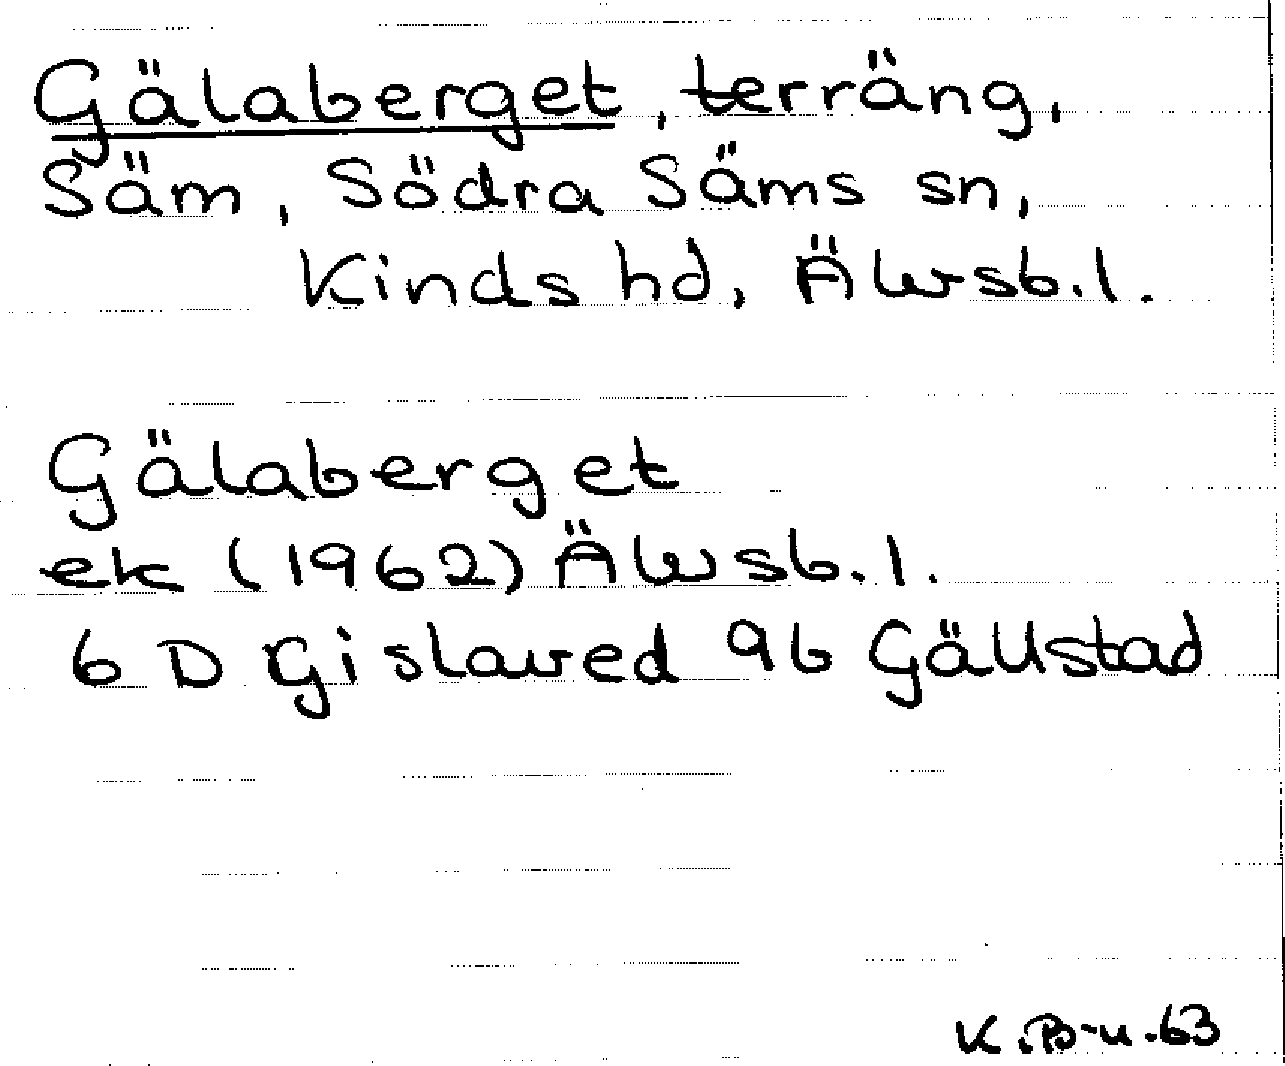 Gälaberget, terräng,
Säm, Södra Säms sn,
Kinds hd, Älvsb.l.
Gälaberget
ek (1962) Älvsb.l.
6 D Gislaved 9b Gällstad
K.B-n.63